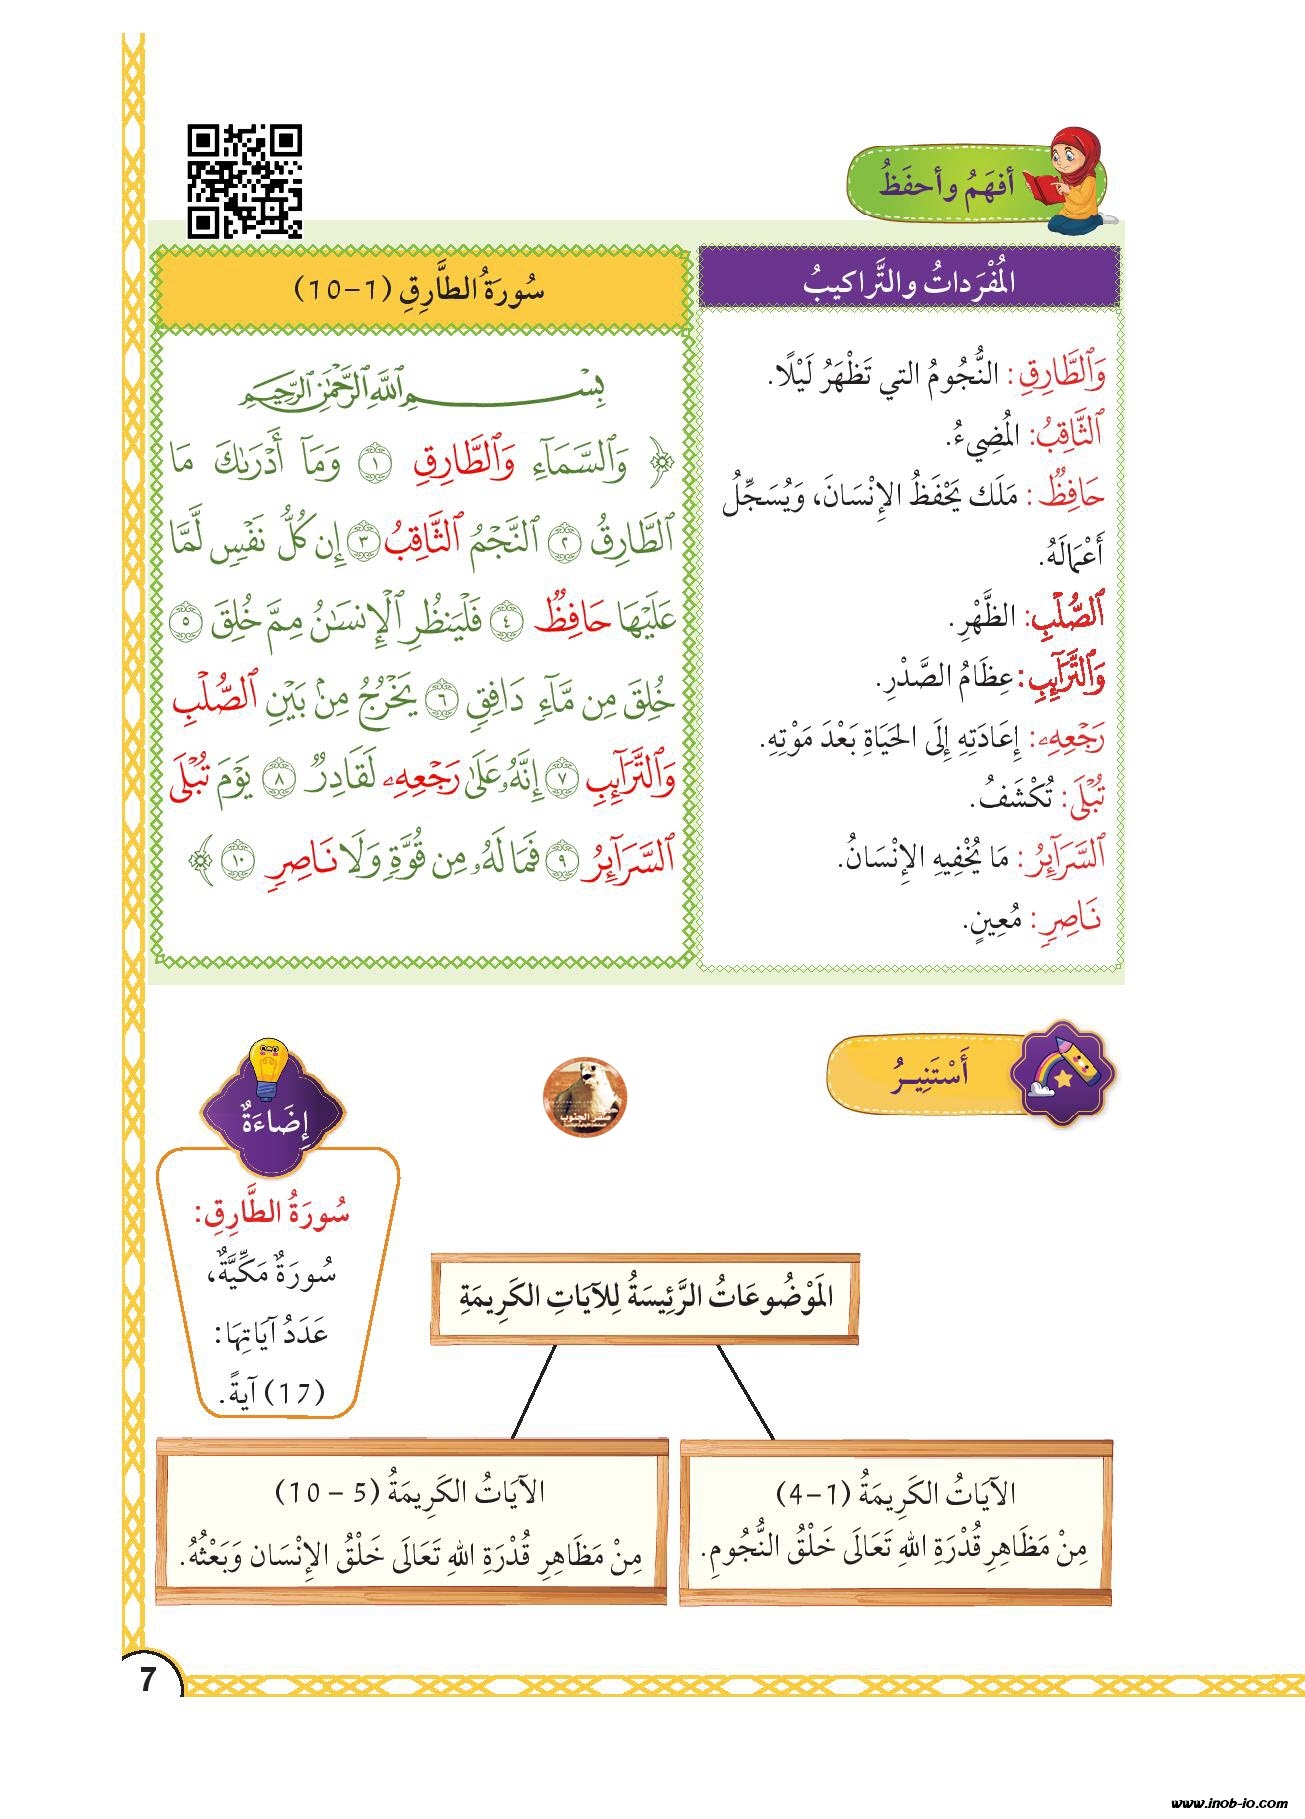 أفهَمُ وأحفَظُ
المُفْرَداتُ والتَّراكيبُ
وَٱلطَّارِقِ: النُّجُومُ التي تَظْهَرُ لَيْلًا.
ٱلثَّاقِبُ: المُضِيءُ.
حَافِظٌ: مَلَك يَحْفَظُ الإِنْسَانَ، وَيُسَجِّلُ
أَعْمَالَهُ.
ٱلصُّلْبِ: الظَّهْرِ.
وَٱلتَّرَآئِبِ: عِظَامُ الصَّدْرِ.
رَجْعِهِۦ: إِعَادَتِهِ إِلَى الحَيَاةِ بَعْدَ مَوْتِهِ.
تُبْلَى: تُكْشَفُ.
ٱلسَّرَآئِرُ: مَا يُخْفِيهِ الإِنْسَانُ.
نَاصِرٍ: مُعِينٍ.
سُورَةُ الطَّارِقِ (1-10)
بِسْمِ ٱللَّهِ ٱلرَّحْمَٰنِ ٱلرَّحِيمِ
﴿ وَٱلسَّمَآءِ وَٱلطَّارِقِ ١ وَمَآ أَدْرَىٰكَ مَا
ٱلطَّارِقُ ٢ ٱلنَّجْمُ ٱلثَّاقِبُ ٣ إِن كُلُّ نَفْسٍ لَّمَّا
عَلَيْهَا حَافِظٌ ٤ فَلْيَنظُرِ ٱلْإِنسَٰنُ مِمَّ خُلِقَ ٥
خُلِقَ مِن مَّآءٍ دَافِقٍ ٦ يَخْرُجُ مِنۢ بَيْنِ ٱلصُّلْبِ
وَٱلتَّرَآئِبِ ٧ إِنَّهُۥ عَلَىٰ رَجْعِهِۦ لَقَادِرٌ ٨ يَوْمَ تُبْلَى
ٱلسَّرَآئِرُ ٩ فَمَا لَهُۥ مِن قُوَّةٍ وَلَا نَاصِرٍ ١٠ ﴾
أَسْتَنِيرُ
صقر الجنوب
إِضَاءَةٌ
سُورَةُ الطَّارِقِ:
سُورَةٌ مَكِّيَّةٌ،
عَدَدُ آيَاتِهَا:
(17) آيةً.
المَوْضُوعَاتُ الرَّئِيسَةُ لِلآيَاتِ الكَرِيمَةِ
الآيَاتُ الكَرِيمَةُ (1-4)
مِنْ مَظَاهِرِ قُدْرَةِ اللهِ تَعَالَى خَلْقُ النُّجُومِ.
الآيَاتُ الكَرِيمَةُ (5 - 10)
مِنْ مَظَاهِرِ قُدْرَةِ اللهِ تَعَالَى خَلْقُ الإِنْسَان وَبَعْثُهُ.
7
www.jnob-jo.com